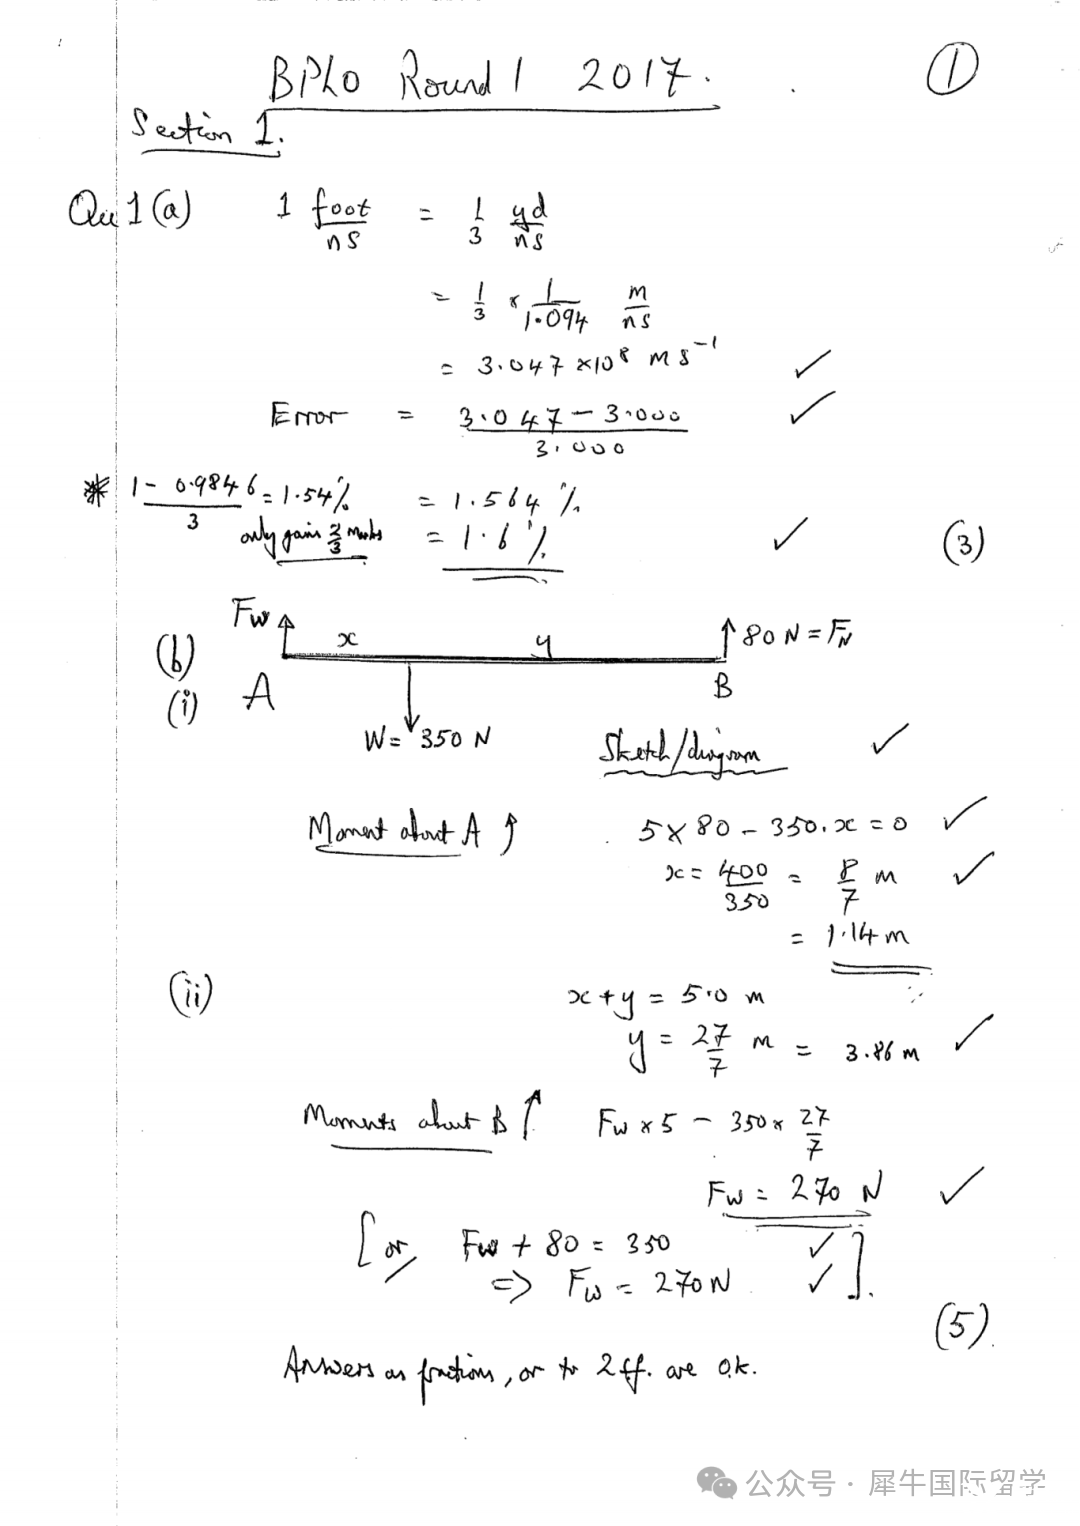 BPhO Round 1 2017.
①
Section 1.
Qu 1 (a) 1 foot/ns = 1/3 yd/ns
= 1/3 × 1/1.094 m/ns
= 3.047 × 10⁸ m s⁻¹ ✓
Error = (3.047 − 3.000)/3.000 ✓
* (1 − 0.9846)/3 = 1.54% = 1.564 %
only gains 2/3 marks = 1.6% ✓ (3)
(b) Fw x y 80 N = F_N
(i) A B
W = 350 N
Sketch/diagram ✓
Moment about A 5 × 80 − 350.x = 0 ✓
x = 400/350 = 8/7 m ✓
= 1.14 m
(ii) x + y = 5.0 m
y = 27/7 m = 3.86 m ✓
Moments about B Fw × 5 − 350 × 27/7
Fw = 270 N ✓
[or, Fw + 80 = 350 ✓
=> Fw = 270 N ✓].
(5).
Answers as fractions, or to 2 sf. are o.k.
公众号 · 犀牛国际留学